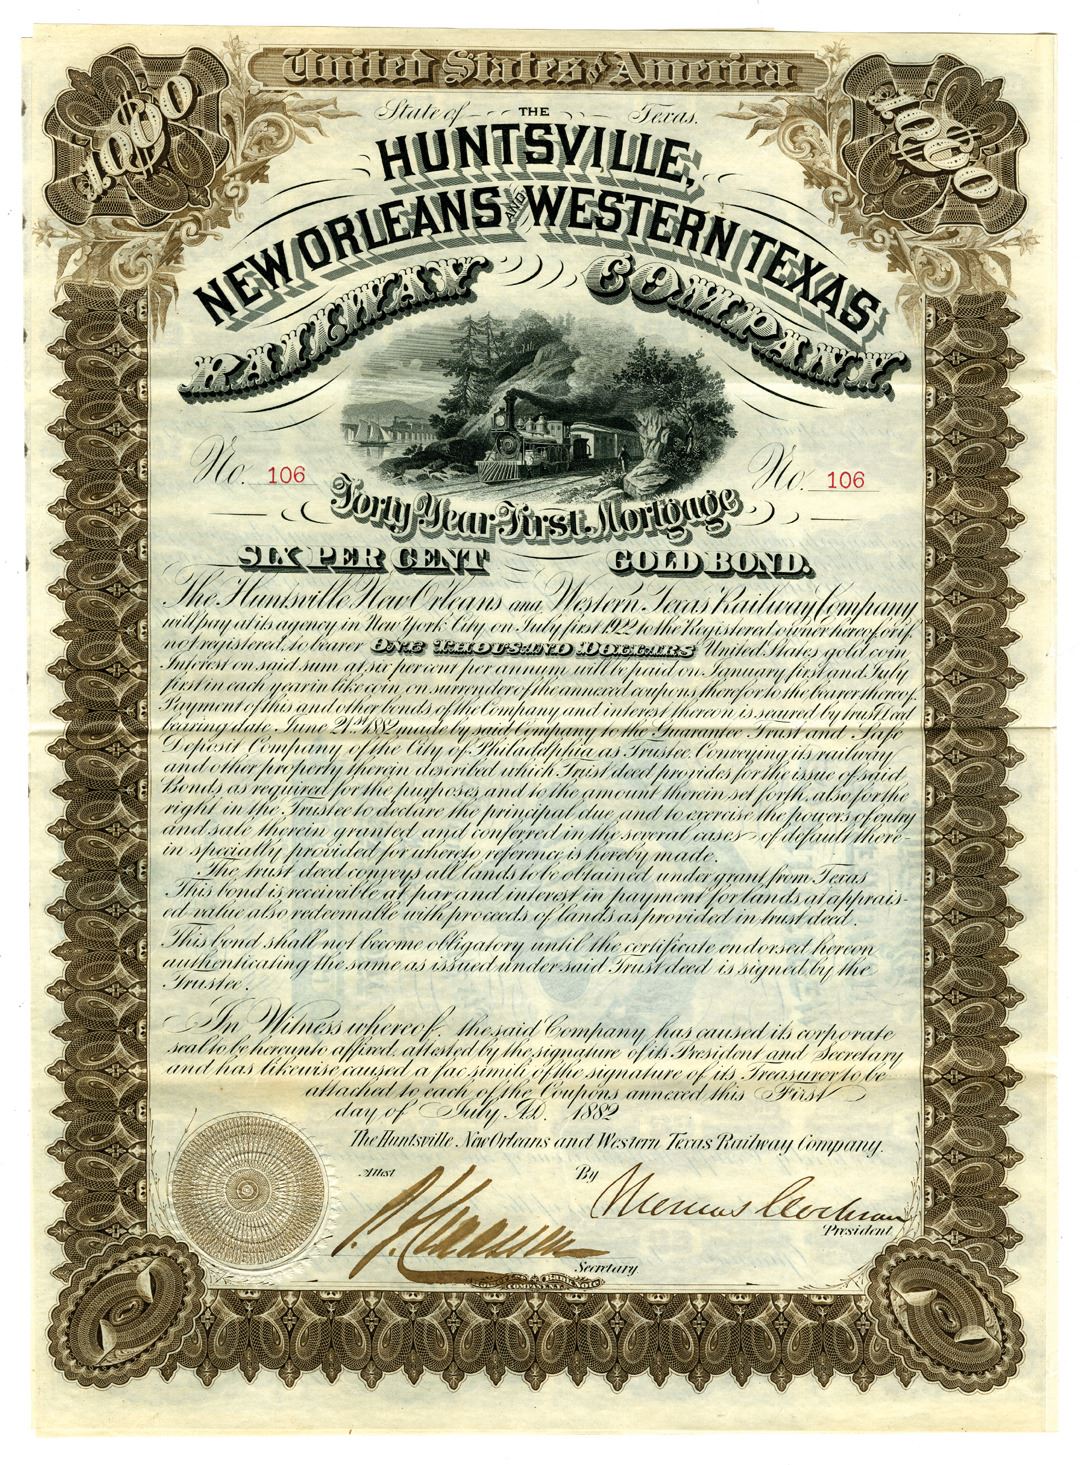 United States of America
$1000 $1000
State of THE Texas.
HUNTSVILLE,
NEW ORLEANS AND WESTERN TEXAS
RAILWAY COMPANY.
No. 106 No. 106
Forty Year First Mortgage
SIX PER CENT GOLD BOND.
The Huntsville New Orleans and Western Texas Railway Company
will pay at its agency in New York City on July first 1922 to the Registered owner hereof or if
not registered, to bearer ONE THOUSAND DOLLARS United States gold coin
Interest on said sum at six per cent per annum will be paid on January first and July
first in each year in like coin, on surrender of the annexed coupons therefor to the bearer thereof.
Payment of this and other bonds of the Company and interest thereon is secured by trust Deed
bearing date June 21st 1882 made by said Company to the Guarantee Trust and Safe
Deposit Company of the City of Philadelphia as Trustee. Conveying its railway
and other property therein described which Trust deed provides for the issue of said
Bonds as required for the purposes and to the amount therein set forth, also for the
right in the Trustee to declare the principal due and to exercise the powers of entry
and sale therein granted and conferred in the several cases of default there-
in specially provided for whereto reference is hereby made.
The trust deed conveys all lands to be obtained under grant from Texas
This bond is receivable at par and interest in payment for lands at apprais-
ed value also redeemable with proceeds of lands as provided in trust deed.
This bond shall not become obligatory until the certificate endorsed hereon
authenticating the same as issued under said Trust deed is signed by the
Trustee.
In Witness whereof, the said Company has caused its corporate
seal to be hereunto affixed, attested by the signature of its President and Secretary
and has likewise caused a fac simili of the signature of its Treasurer to be
attached to each of the Coupons annexed this First
day of July A.D. 1882
The Huntsville New Orleans and Western Texas Railway Company.
Attest By
Thomas Cochran
President
Secretary.